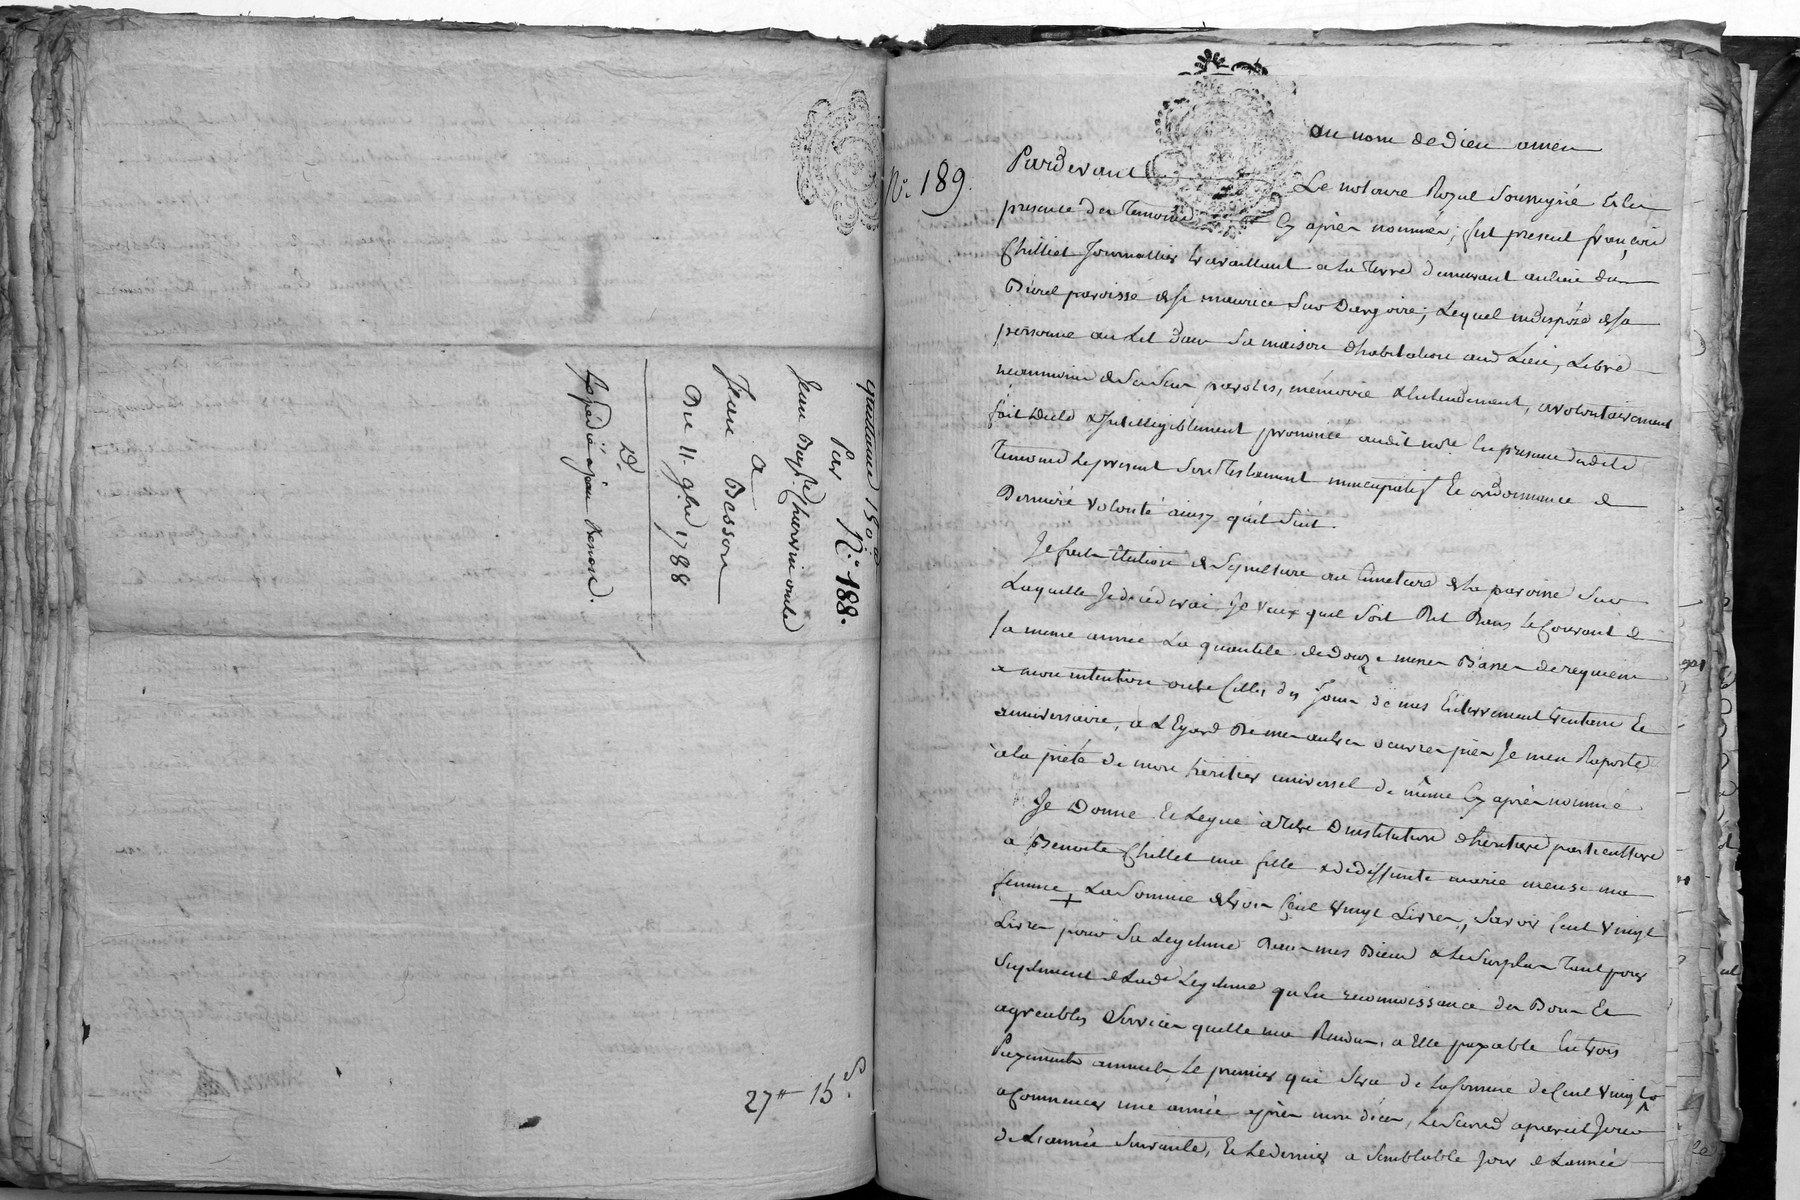 quittance 150.#
Par N.° 188.
Jean Bapte Charvin
a
Jean Besson
Du 11. 9bre 1788
D.
Expédié à Jean Besson.
27# 15s
N.° 189.
au nom de dieu amen
Pardevant
Le notaire Royal Soussigné Et En
presence des Temoins Cy après nommés; fut present françois
Chilliet Journallier travaillant a la Terre demeurant au lieu du
Burel paroisse de St maurice Sur Dargoire; Lequel indispozé de sa
personne au Lit dans Sa maison d'habitation aud. Lieu, Libre
neanmoins de Ses Sens paroles, mémoire & Entendement, a volontairement
fait Dicté & Intelligiblement prononcé audit note. En presence desdits
Temoins Le present Son Testament nuncupatif Et ordonnance de
Derniere volonté ainsy qu'il Suit.
Je fais Election de Sepulture au Cimetiere de la paroisse Sur
Laquelle Je decederai Je veux quil Soit Dit Dans Le Courant de
la meme année La quantité de Douze messes Basses de requiem
a mon intention outre Celles des Jours de mes Enterrement trentene Et
anniversaire, a L'Egard De mes autres oeuvres pies Je m'en Raporte
a la piété de mon héritier universel de même Cy après nommé
Je Donne Et Legue à titre D'institution d'héritiere particulliere
a Benoite Chillet ma fille & de deffunte marie meuse ma
femme + La Somme de trois Cent vingt Livres, Savoir Cent vingt
Livres pour Sa Legitime Dans mes Biens & Le Surplus Tant pour
Suplement de Lade Legitime qu'En reconnoissance des Bons Et
agreables Services quelle ma Rendus, a Elle payable En trois
Payements annuels, Le premier qui Sera de La Somme de Cent vingt
a Commencer une année après mon décès, Le Second a pareil Jour
de L'année Suivante, Et Le dernier a Semblable Jour de L'année